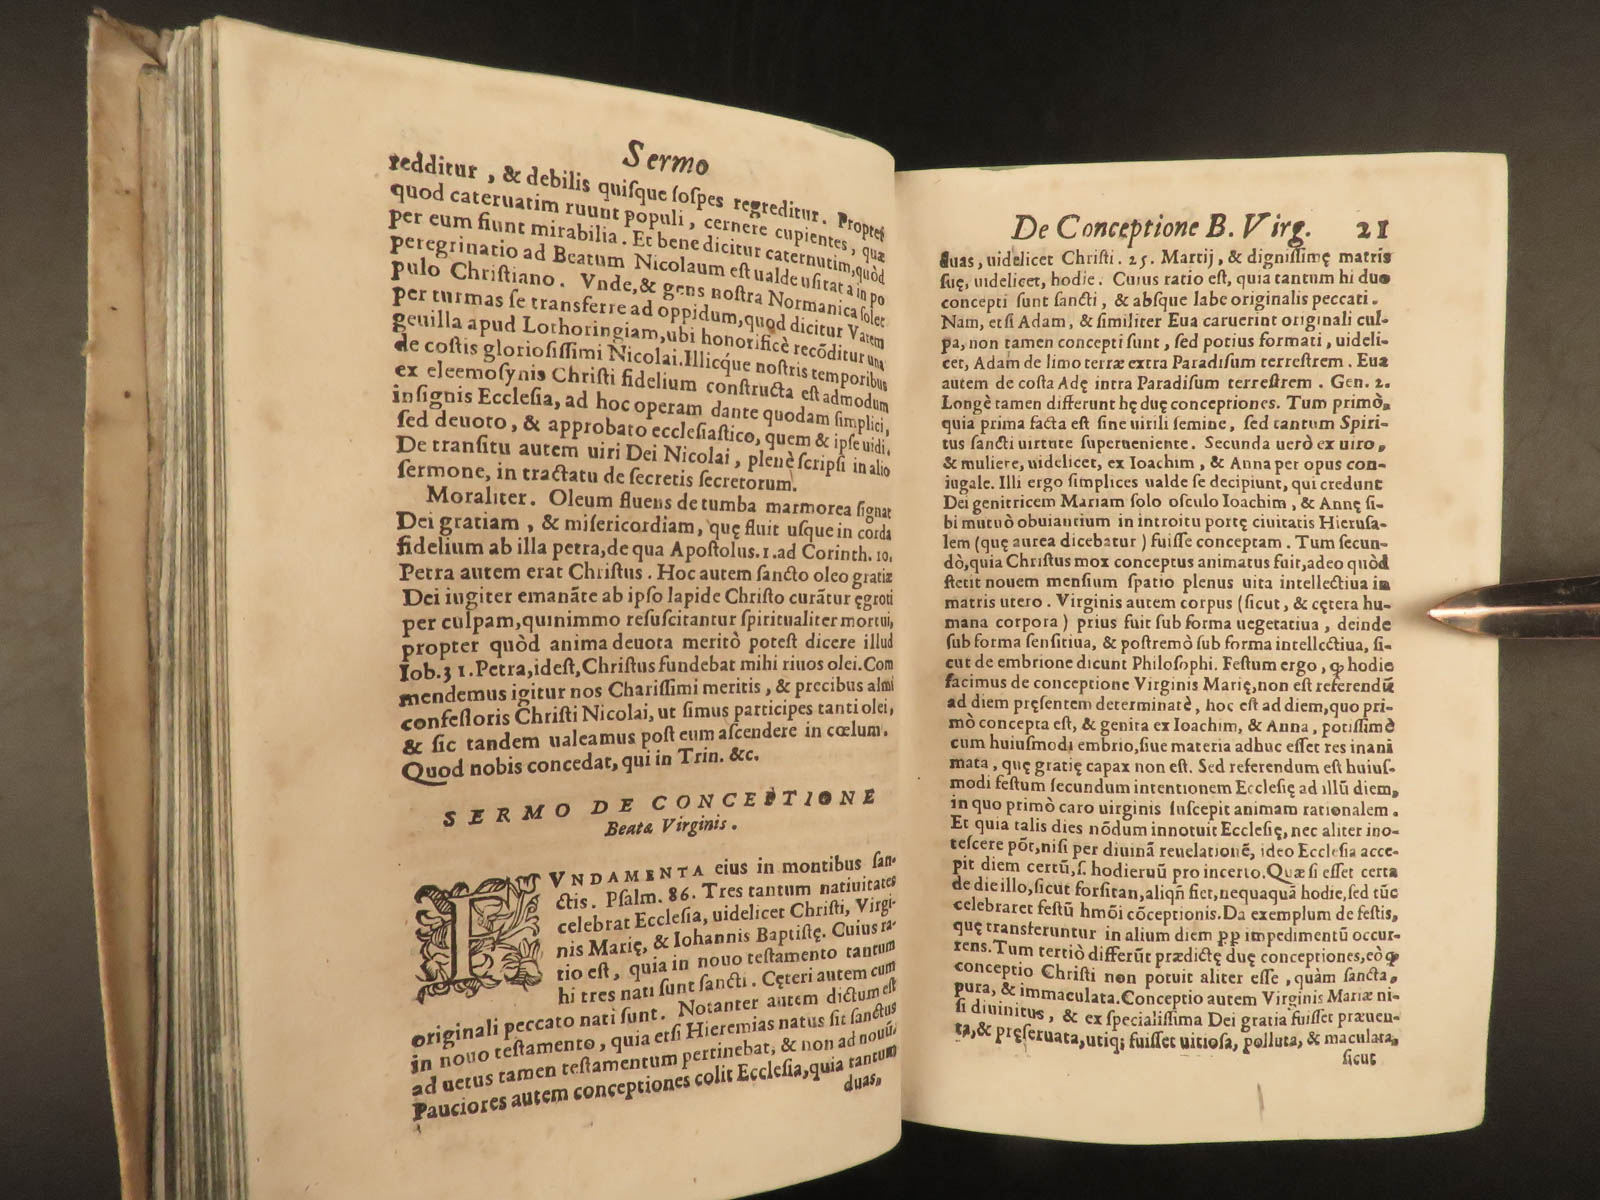 Sermo
redditur, & debilis quiſque ſoſpes regreditur. Propter
quod cateruatim ruunt populi, cernere cupientes, quæ
per eum fiunt mirabilia. Et bene dicitur caternutim, quòd
peregrinatio ad Beatum Nicolaum eſt ualde uſitata in po
pulo Chriſtiano. Vnde, & gens noſtra Normanica ſolet
per turmas ſe transferre ad oppidum, quod dicitur Varem
geuilla apud Lothoringiam, ubi honorificè recõditur una
de coſtis glorioſiſſimi Nicolai. Illicq́ue noſtris temporibus
ex eleemoſynis Chriſti fidelium conſtructa eſt admodum
inſignis Eccleſia, ad hoc operam dante quodam ſimplici,
ſed deuoto, & approbato eccleſiaſtico, quem & ipſe uidi.
De tranſitu autem uiri Dei Nicolai, plenè ſcripſi in alio
ſermone, in tractatu de ſecretis ſecretorum.
Moraliter. Oleum fluens de tumba marmorea ſignat
Dei gratiam, & miſericordiam, quę fluit uſque in corda
fidelium ab illa petra, de qua Apoſtolus. 1. ad Corinth. 10.
Petra autem erat Chriſtus. Hoc autem ſancto oleo gratiæ
Dei iugiter emanãte ab ipſo lapide Chriſto curãtur ęgroti
per culpam, quinimmo reſuſcitantur ſpiritualiter mortui,
propter quòd anima deuota meritò poteſt dicere illud
Iob. 31. Petra, ideſt, Chriſtus fundebat mihi riuos olei. Com
mendemus igitur nos Chariſſimi meritis, & precibus almi
confeſſoris Chriſti Nicolai, ut ſimus participes tanti olei,
& ſic tandem ualeamus poſt eum aſcendere in cœlum.
Quod nobis concedat, qui in Trin. &c.
SERMO DE CONCEPTIONE
Beatæ Virginis.
FVNDAMENTA eius in montibus ſan-
ctis. Pſalm. 86. Tres tantum natiuitates
celebrat Eccleſia, uidelicet Chriſti, Virgi-
nis Marię, & Iohannis Baptiſtę. Cuius ra-
tio eſt, quia in nouo teſtamento tantum
hi tres nati ſunt ſancti. Cęteri autem cum
originali peccato nati ſunt. Notanter autem dictum eſt
in nouo teſtamento, quia etſi Hieremias natus ſit ſanctus
ad uetus tamen teſtamentum pertinebat, & non ad nouũ.
Pauciores autem conceptiones colit Eccleſia, quia tantum
duas,
De Conceptione B. Virg. 21
duas, uidelicet Chriſti. 25. Martij, & digniſſimę matris
ſuę, uidelicet, hodie. Cuius ratio eſt, quia tantum hi duo
concepti ſunt ſancti, & abſque labe originalis peccati.
Nam, etſi Adam, & ſimiliter Eua caruerint originali cul-
pa, non tamen concepti ſunt, ſed potius formati, uideli-
cet, Adam de limo terræ extra Paradiſum terreſtrem. Eua
autem de coſta Adę intra Paradiſum terreſtrem. Gen. 2.
Longè tamen differunt hę duę conceptiones. Tum primò,
quia prima facta eſt ſine uirili ſemine, ſed tantum Spiri-
tus ſancti uirtute ſuperueniente. Secunda uerò ex uiro,
& muliere, uidelicet, ex Ioachim, & Anna per opus con-
iugale. Illi ergo ſimplices ualde ſe decipiunt, qui credunt
Dei genitricem Mariam ſolo oſculo Ioachim, & Annę ſi-
bi mutuò obuiantium in introitu portę ciuitatis Hieruſa-
lem (quę aurea dicebatur) fuiſſe conceptam. Tum ſecun-
dò, quia Chriſtus mox conceptus animatus fuit, adeo quòd
ſtetit nouem menſium ſpatio plenus uita intellectiua in
matris utero. Virginis autem corpus (ſicut, & cętera hu-
mana corpora) prius fuit ſub forma uegetatiua, deinde
ſub forma ſenſitiua, & poſtremò ſub forma intellectiua, ſi-
cut de embrione dicunt Philoſophi. Feſtum ergo, ꝙ hodie
facimus de conceptione Virginis Marię, non eſt referendũ
ad diem pręſentem determinatè, hoc eſt ad diem, quo pri-
mò concepta eſt, & genita ex Ioachim, & Anna, potiſſimè
cum huiuſmodi embrio, ſiue materia adhuc eſſet res inani
mata, quę gratię capax non eſt. Sed referendum eſt huiuſ-
modi feſtum ſecundum intentionem Eccleſię ad illũ diem,
in quo primò caro uirginis ſuſcepit animam rationalem.
Et quia talis dies nõdum innotuit Eccleſię, nec aliter ino-
teſcere põt, niſi per diuinã reuelationẽ, ideo Eccleſia acce-
pit diem certũ, ſ. hodieruũ pro incerto. Quæ ſi eſſet certa
de die illo, ſicut forſitan, aliqñ fiet, nequaquã hodie, ſed tũc
celebraret feſtũ hmõi cõceptionis. Da exemplum de feſtis,
quę transferuntur in alium diem ꝓp impedimentũ occur-
rens. Tum tertiò differũt prædictę duę conceptiones, eò ꝙ
conceptio Chriſti non potuit aliter eſſe, quàm ſancta,
pura, & immaculata. Conceptio autem Virginis Mariæ ni-
ſi diuinitus, & ex ſpecialiſſima Dei gratia fuiſſet præuen-
ta, & pręſeruata, utiq; fuiſſet uitioſa, polluta, & maculata,
ſicut